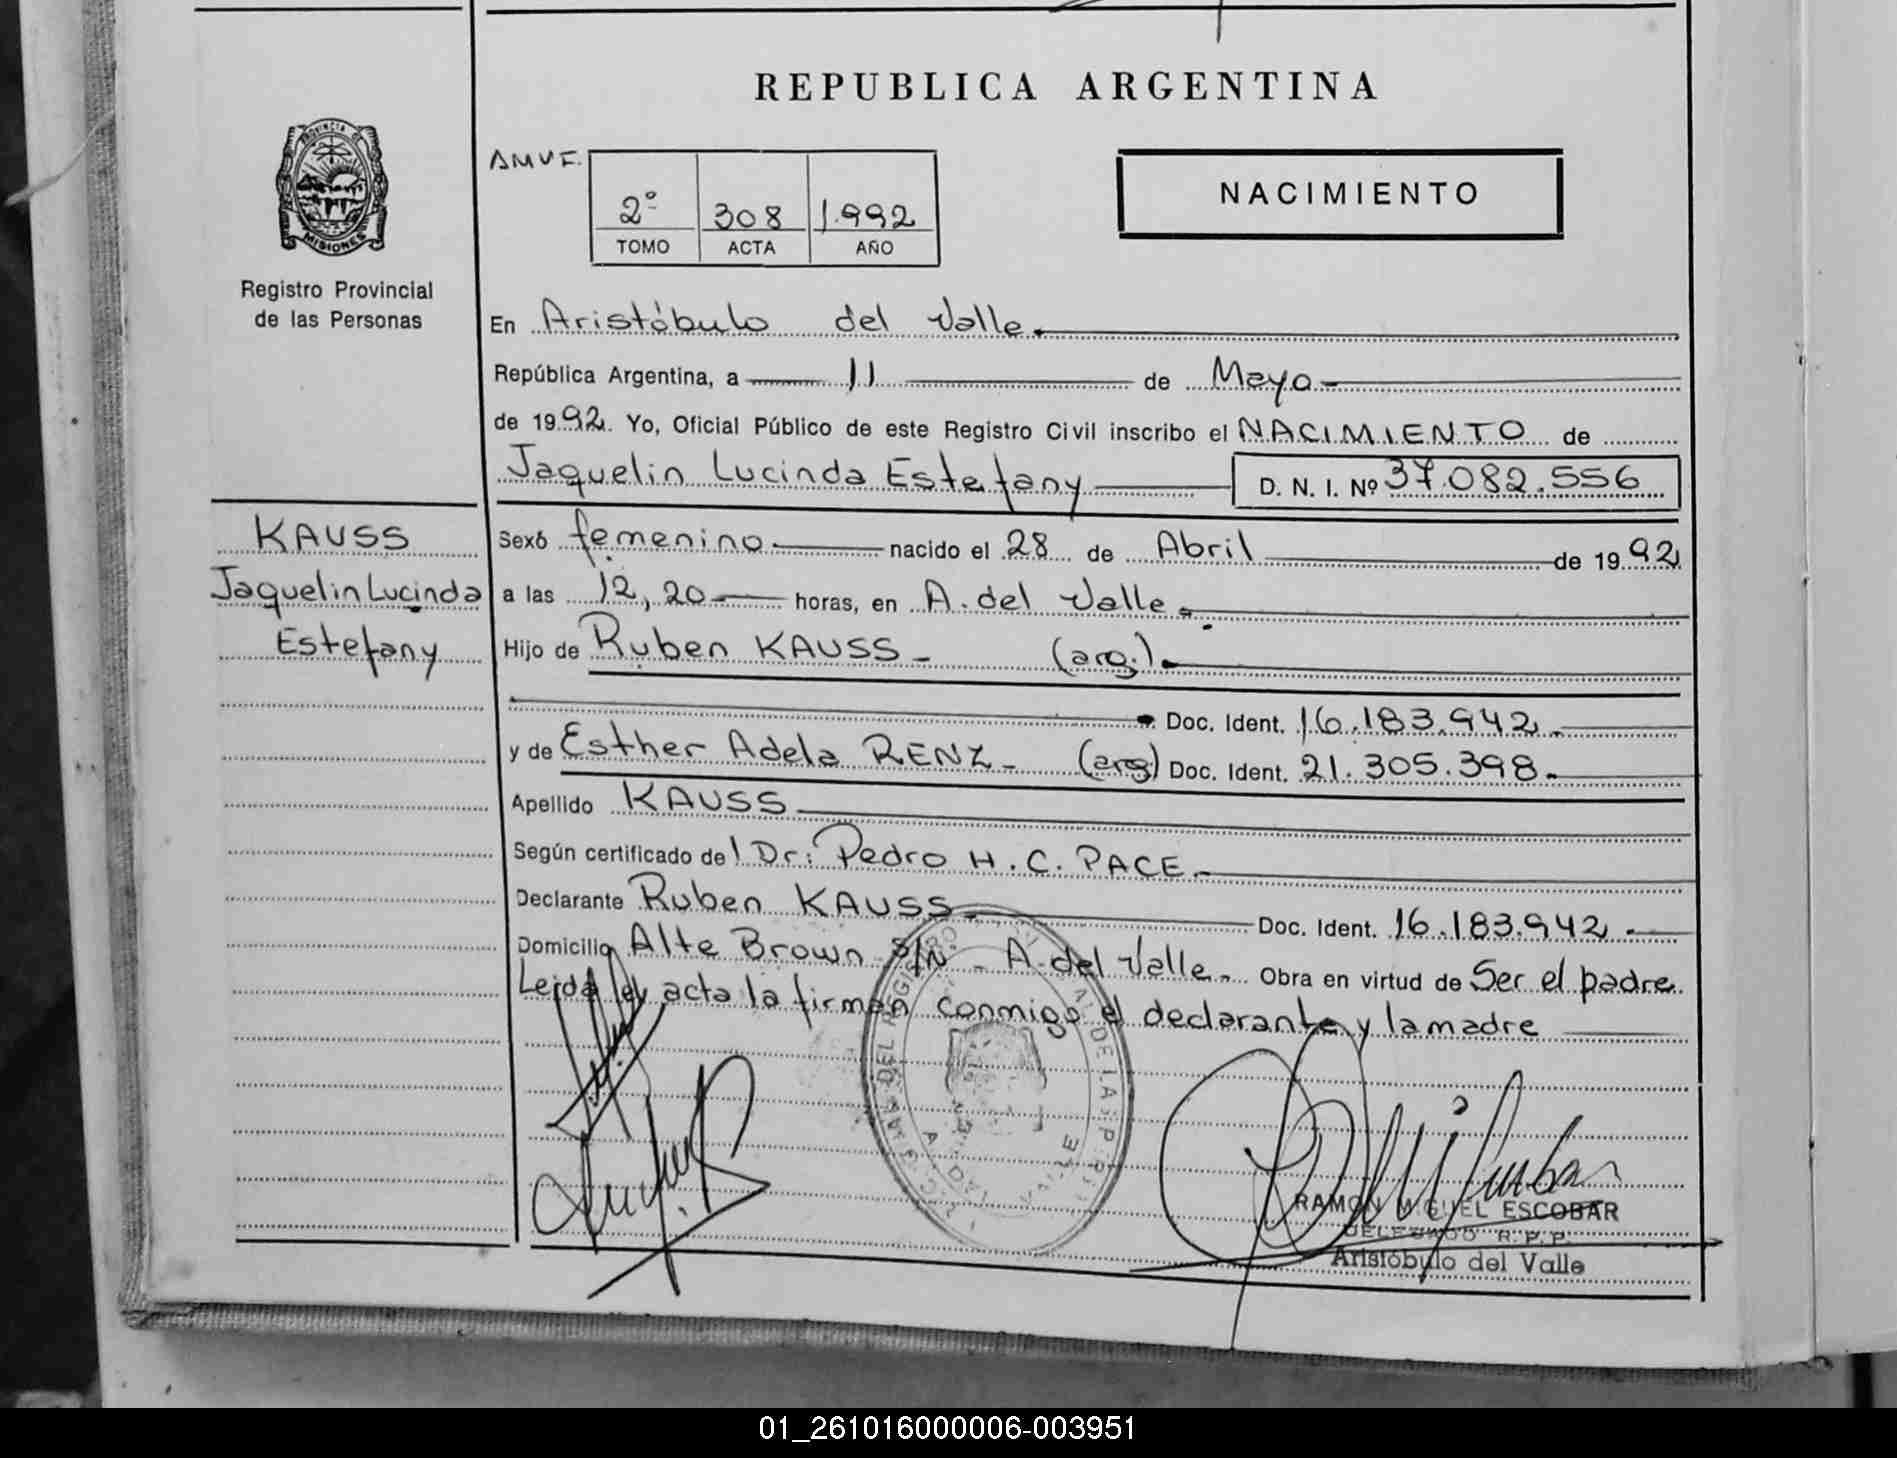 REPUBLICA ARGENTINA
PROVINCIA DE
MISIONES
Registro Provincial
de las Personas
AMVF.
2º 308 1.992
TOMO ACTA AÑO
NACIMIENTO
En Aristóbulo del Valle.
República Argentina, a 11 de Mayo
de 1992. Yo, Oficial Público de este Registro Civil inscribo el NACIMIENTO de
Jaquelin Lucinda Estefany D. N. I. Nº 37.082.556
KAUSS
Jaquelin Lucinda
Estefany
Sexo femenino nacido el 28 de Abril de 1992
a las 12,20 horas, en A. del Valle.
Hijo de Ruben KAUSS - (arg.).
Doc. Ident. 16.183.942.
y de Esther Adela RENZ - (arg.) Doc. Ident. 21.305.398.
Apellido KAUSS
Según certificado de l Dr: Pedro H. C. PACE.
Declarante Ruben KAUSS. Doc. Ident. 16.183.942.
Domicilio Alte Brown S/N. - A. del Valle. Obra en virtud de Ser el padre.
Leida el acta la firman conmigo el declarante y la madre
A. DEL VALLE
RAMON MIGUEL ESCOBAR
DELEGADO R.P.P.
Aristóbulo del Valle
01_261016000006-003951